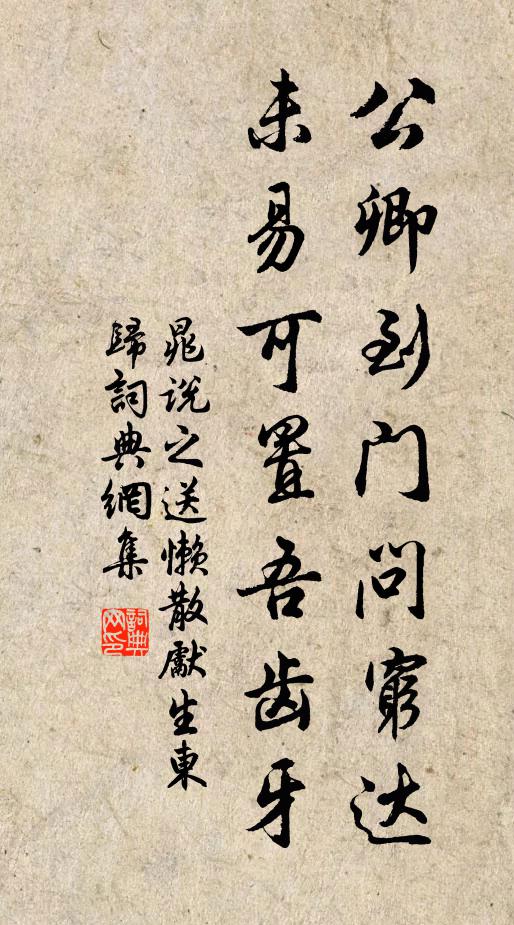 公卿到门问窮达
未易可置吾齿牙
晁说之送懒散獻生東
歸詞典網集
詞典网印